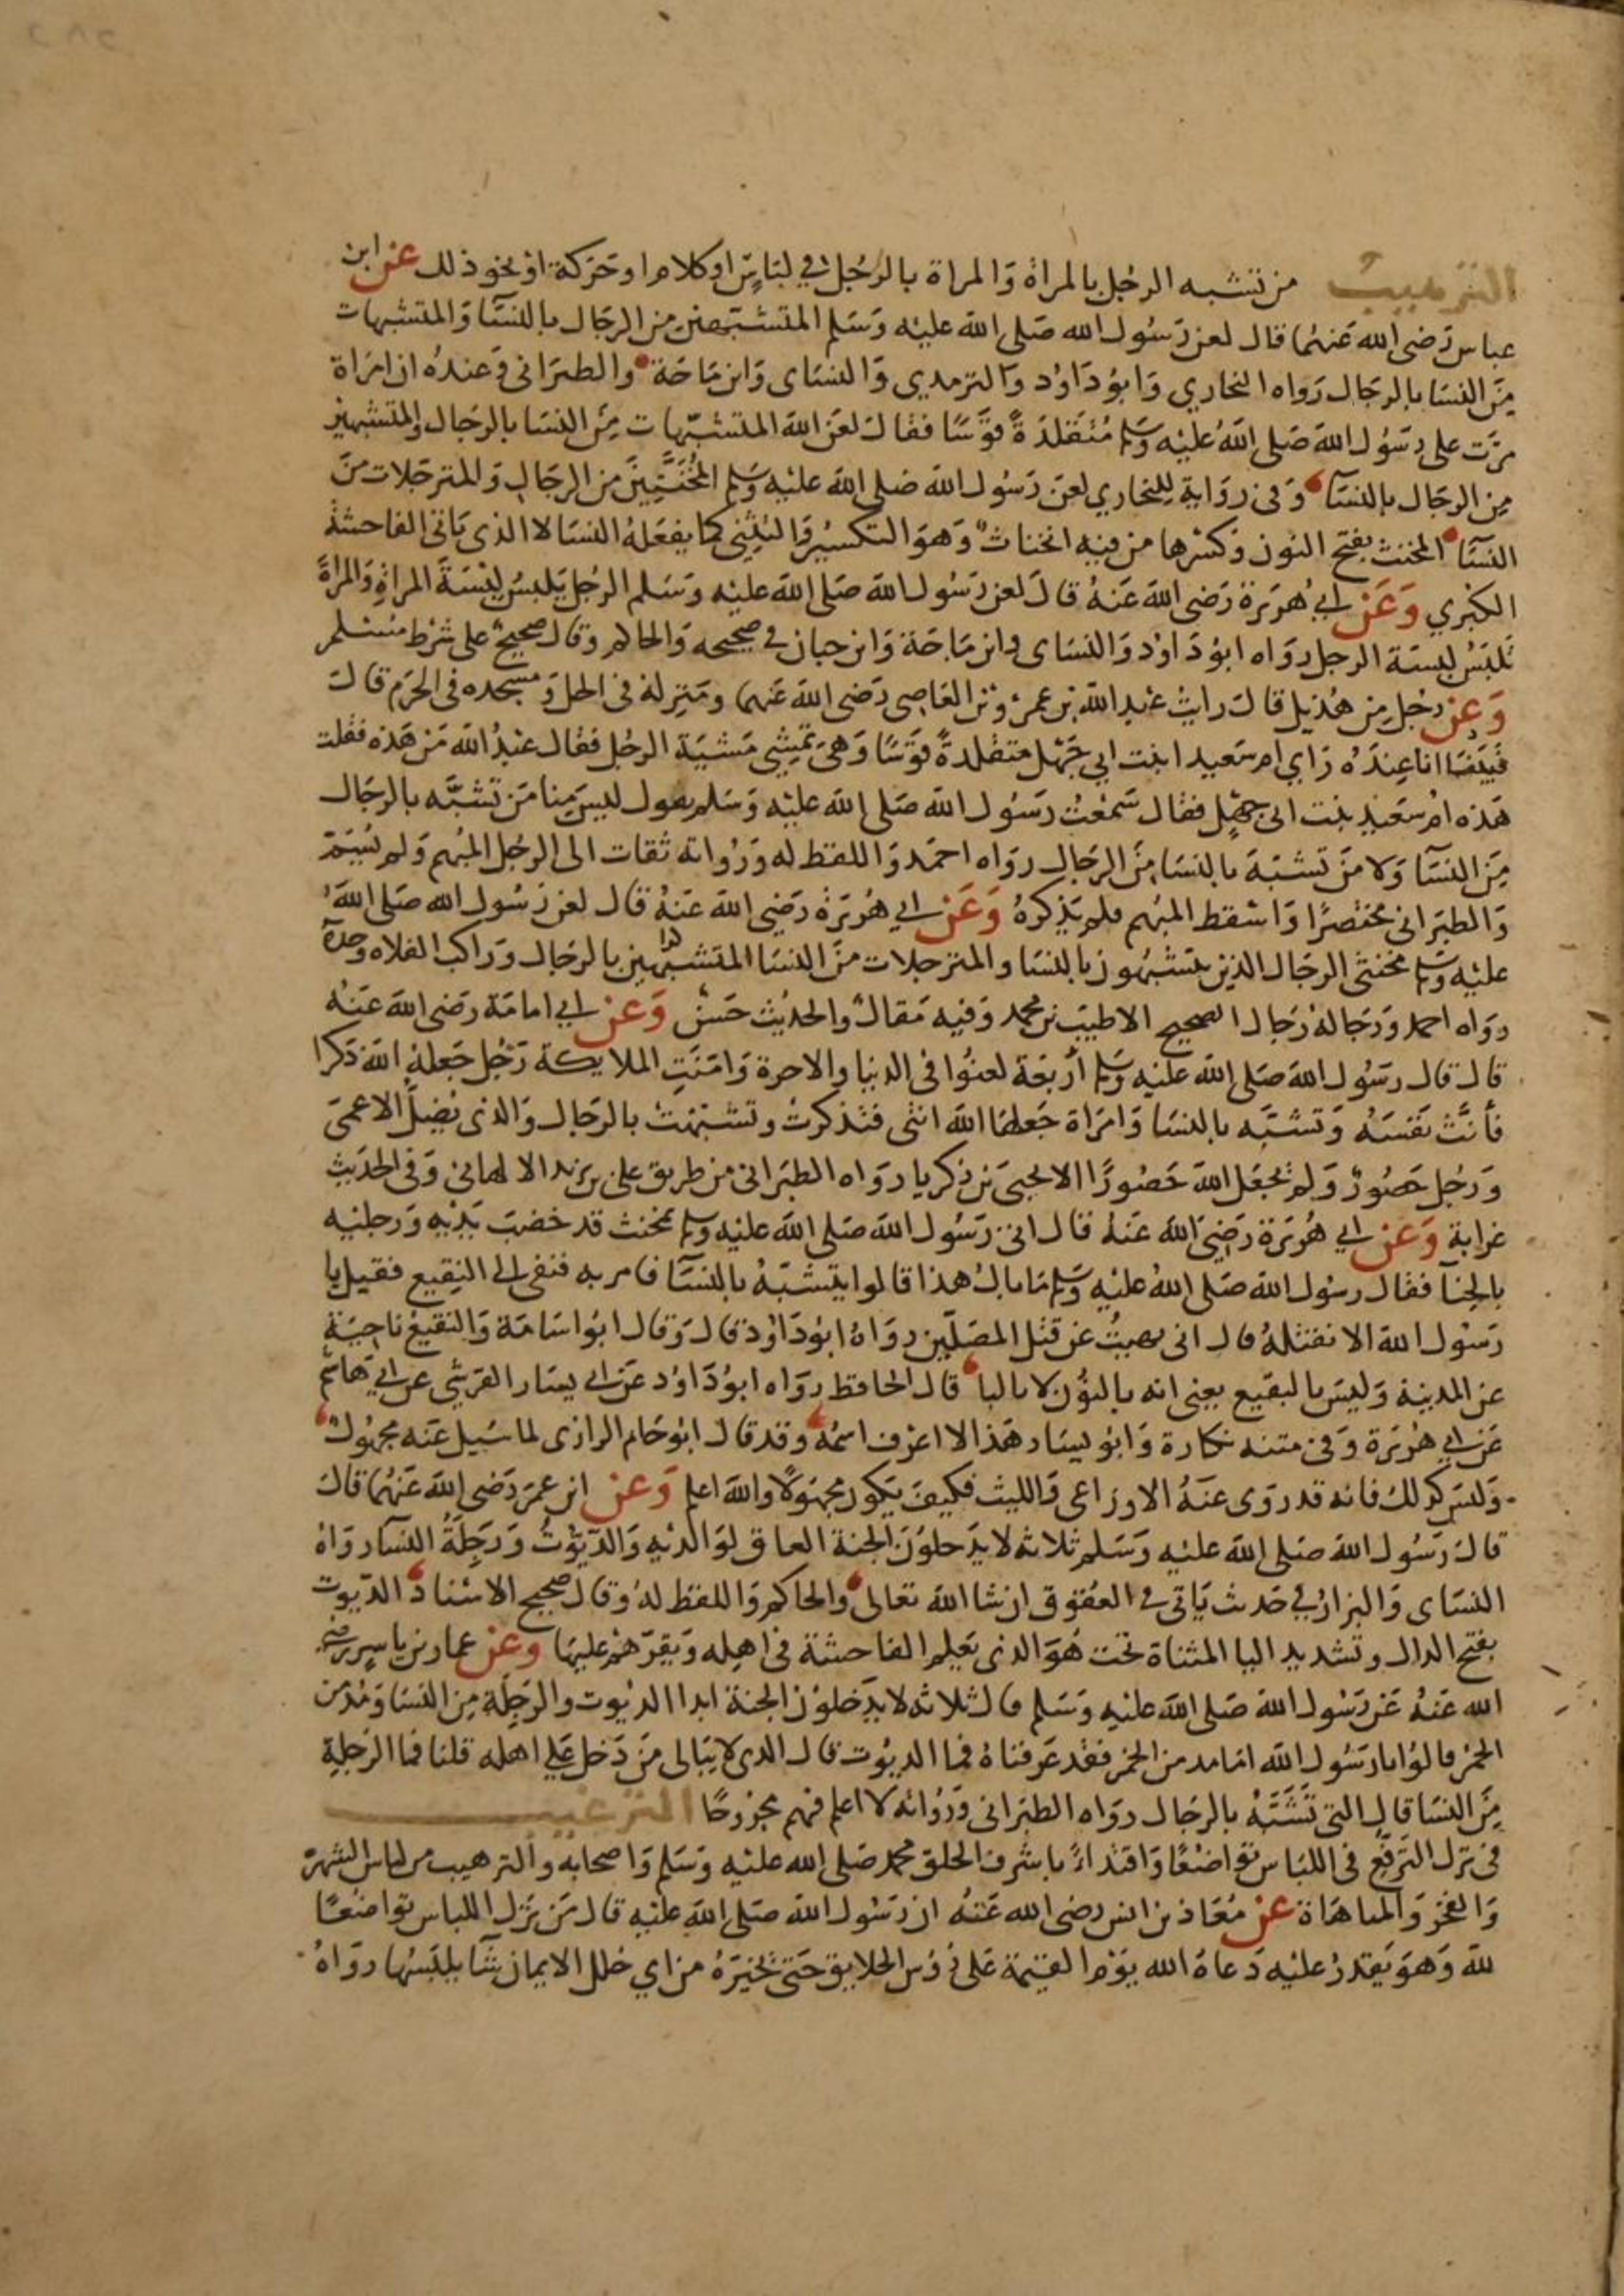 الترهيب من تشبه الرجل بالمراة والمراة بالرجل في لباس او كلام او حركة او نحو ذلك عن ابن
عباس رضى الله عنهما قال لعن رسول الله صلى الله عليه وسلم المتشبهين من الرجال بالنسآ والمتشبهات
من النسا بالرجال رواه البخاري وابو داود والترمدي والنساى وابن ماجة والطبرانى وعنده ان امراة
مرت على رسول الله صلى الله عليه وسلم متقلدة قوسا فقال لعن الله المتشبهات من النسا بالرجال والمتشبهين
من الرجال بالنسآ وفى رواية للبخاري لعن رسول الله صلى الله عليه وسلم المخنثين من الرجال والمترجلات من
النسآ المخنث بفتح النون وكسرها من فيه انخناث وهو التكسير والتثنى كما يفعله النسا لا الذى ياتى الفاحشة
الكبري وعن ابي هريرة رضى الله عنه قال لعن رسول الله صلى الله عليه وسلم الرجل يلبس لبسة المراة والمراة
تلبس لبسة الرجل رواه ابو داود والنساى وابن ماجة وابن حبان في صحيحه والحاكم وقال صحيح على شرط مسلم
وعن رجل من هذيل قال رايت عبد الله بن عمرو بن العاصى رضى الله عنهما ومنزله فى الحل ومسجده فى الحرم قال
فبينا انا عنده راي ام سعيد ابنت ابي جهل متقلدة قوسا وهى تمشي مشية الرجل فقال عبد الله من هذه فقلت
هذه ام سعيد بنت ابى جهل فقال سمعت رسول الله صلى الله عليه وسلم يقول ليس منا من تشبه بالرجال
من النسآ ولا من تشبه بالنسا من الرجال رواه احمد واللفظ له ورواته ثقات الى الرجل المبهم ولم يسم
والطبرانى مختصرا واسقط المبهم فلم يذكره وعن ابي هريرة رضي الله عنه قال لعن رسول الله صلى الله
عليه وسلم مخنثى الرجال الذين يتشبهون بالنسا والمترجلات من النسا المتشبهين بالرجال وراكب الفلاه وحده
رواه احمد ورجاله رجال الصحيح الا طيب بن محمد وفيه مقال والحديث حسن وعن ابي امامة رضى الله عنه
قال قال رسول الله صلى الله عليه وسلم أربعة لعنوا فى الدنيا والاخرة وامنت الملايكة رجل جعله الله ذكرا
فأنث نفسه وتشبه بالنسا وامراة جعلها الله انثى فتذكرت وتشبهت بالرجال والذى يضل الاعمى
ورجل حصور ولم يجعل الله حصورا الا يحيى بن زكريا رواه الطبرانى من طريق على بن يزيد الالهانى وفى الحديث
غرابة وعن ابي هريرة رضي الله عنه قال اتى رسول الله صلى الله عليه وسلم بمخنث قد خضب يديه ورجليه
بالحنآ فقال رسول الله صلى الله عليه وسلم ما بال هذا قالوا يتشبه بالنسآ فامر به فنفى الى النقيع فقيل يا
رسول الله الا نقتله قال انى نهيت عن قتل المصلين رواه ابو داود قال وقال ابو اسامة والنقيع ناحية
عن المدينة وليس بالبقيع يعنى انه بالنون لا بالبا قال الحافظ رواه ابو داود عن ابى يسار القرشي عن ابي هاشم
عن ابي هريرة وفى متنه نكارة وابو يسار هذا لا اعرف اسمه وقد قال ابو حاتم الرازى لما سيل عنه مجهول
وليس كذلك فانه قد روى عنه الاوزاعى والليث فكيف يكون مجهولا والله اعلم وعن ابن عمر رضى الله عنهما قال
قال رسول الله صلى الله عليه وسلم ثلاثه لا يدخلون الجنة العاق لوالديه والديوث ورجلة النسآ رواه
النساى والبزار في حديث ياتى فى العقوق ان شا الله تعالى والحاكم واللفظ له وقال صحيح الاسناد الديوث
بفتح الدال وتشديد اليا المثناة تحت هو الذى يعلم الفاحشة فى اهله ويقرهم عليها وعن عمار بن ياسر رضى
الله عنه عن رسول الله صلى الله عليه وسلم قال ثلاثه لا يدخلون الجنة ابدا الديوث والرجلة من النسا ومدمن
الخمر قالوا يا رسول الله اما مدمن الخمر فقد عرفناه فما الديوث قال الذى لا يبالى من دخل على اهله قلنا فما الرجلة
من النسا قال التى تشبه بالرجال رواه الطبرانى ورواته لا اعلم فيهم مجروحا الترغيب
فى ترك الترفع فى اللباس تواضعا واقتداء باشرف الخلق محمد صلى الله عليه وسلم واصحابه والترهيب من لباس الشهرة
والفخر والمباهاة عن معاذ بن انس رضى الله عنه ان رسول الله صلى الله عليه قال من ترك اللباس تواضعا
لله وهو يقدر عليه دعاه الله يوم القيمة على رؤس الخلايق حتى يخيره من اي حلل الايمان شآ يلبسها رواه